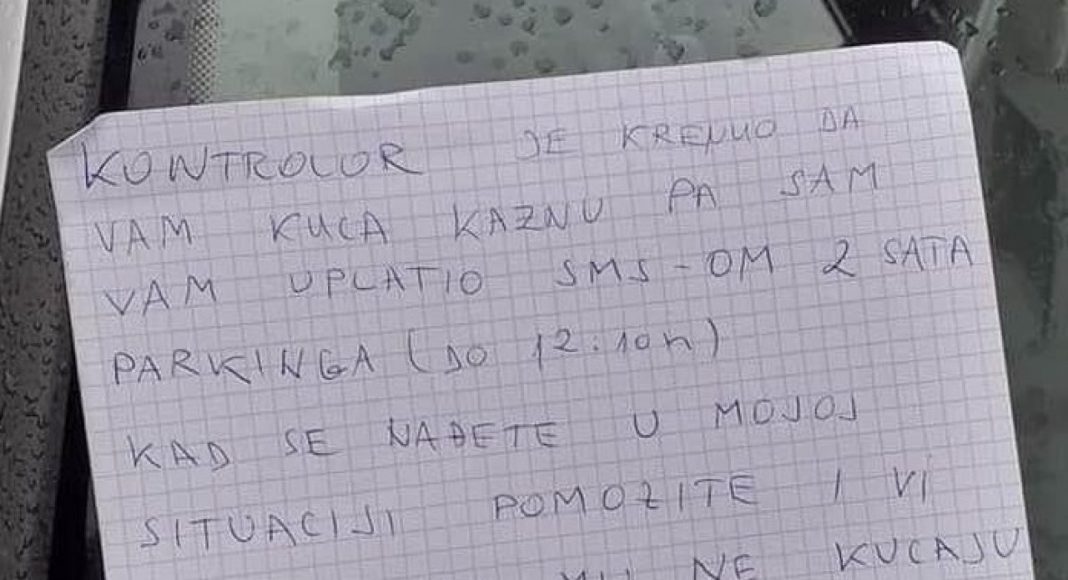 KONTROLOR JE KRENUO DA
VAM KUCA KAZNU PA SAM
VAM UPLATIO SMS-OM 2 SATA
PARKINGA (DO 12:10h)
KAD SE NAĐETE U MOJOJ
SITUACIJI POMOZITE I VI
NE KUCAJU